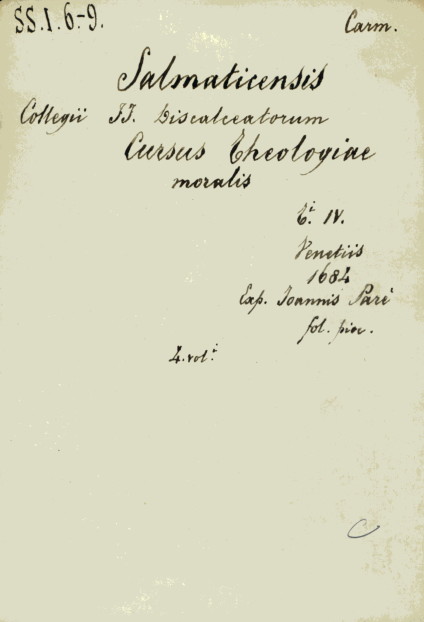 SS.I.6-9.
Carm.
Salmaticensis
Collegii FF. Discalceatorum
Cursus Theologiae
moralis
t.i IV.
Venetiis
1684
Exp. Ioannis Parè
fol. picc.
4. vol.i
C